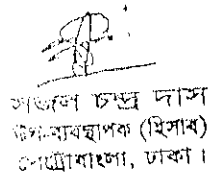 সজল চন্দ্র দাস
উপ-ব্যবস্থাপক (হিসাব)
পেট্রোবাংলা, ঢাকা।